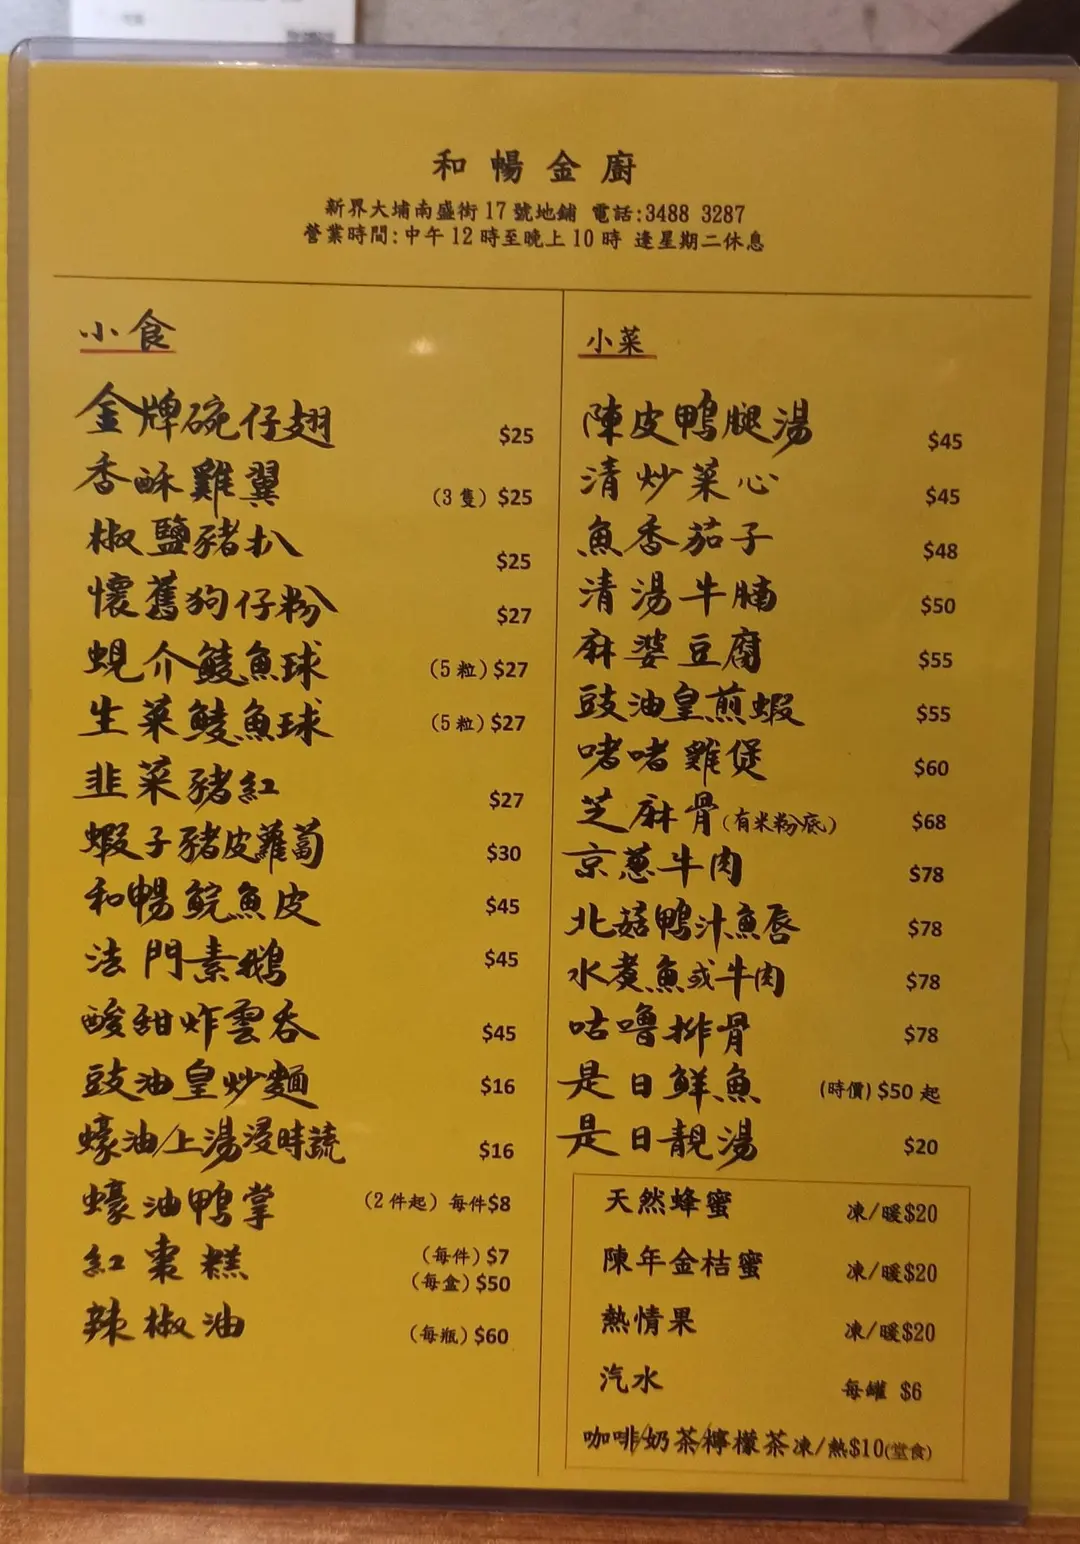 和暢金廚
新界大埔南盛街17號地鋪 電話:3488 3287
營業時間:中午12時至晚上10時 逢星期二休息
小食
金牌碗仔翅 $25
香酥雞翼 (3隻) $25
椒鹽豬扒 $25
懷舊狗仔粉 $27
蜆介鯪魚球 (5粒) $27
生菜鯪魚球 (5粒) $27
韭菜豬紅 $27
蝦子豬皮蘿蔔 $30
和暢鯇魚皮 $45
法門素鵝 $45
酸甜炸雲吞 $45
豉油皇炒麵 $16
蠔油/上湯浸時蔬 $16
蠔油鴨掌 (2件起) 每件$8
紅棗糕 (每件) $7
(每盒) $50
辣椒油 (每瓶) $60
小菜
陳皮鴨腿湯 $45
清炒菜心 $45
魚香茄子 $48
清湯牛腩 $50
麻婆豆腐 $55
豉油皇煎蝦 $55
啫啫雞煲 $60
芝麻骨(有米粉底) $68
京葱牛肉 $78
北菇鴨汁魚唇 $78
水煮魚或牛肉 $78
咕嚕排骨 $78
是日鮮魚 (時價) $50 起
是日靚湯 $20
天然蜂蜜 凍/暖$20
陳年金桔蜜 凍/暖$20
熱情果 凍/暖$20
汽水 每罐 $6
咖啡/奶茶/檸檬茶 凍/熱$10(堂食)